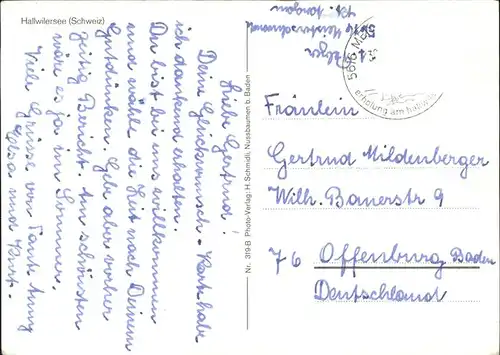 Hallwilersee (Schweiz)
Liebe Gertrud!
Deine Glückwunsch-Karte habe
ich dankend erhalten.
Du bist bei uns willkommen
und wähle die Zeit nach Deinem
Gutdünken. Gib aber vorher
zeitig Bericht. Am schönsten
wäre es ja im Sommer.
Viele Grüsse von Tante Anny
Elsa und Kurt.
Nr. 319-B Photo-Verlag H. Schmidli, Nussbaumen b. Baden
5616 Meisterschwanden
Kt. Aargau
5616 M
erholung am Hallwil
Fräulein
Gertrud Mildenberger
Wilh. Bauerstr 9
76 Offenburg Baden
Deutschland